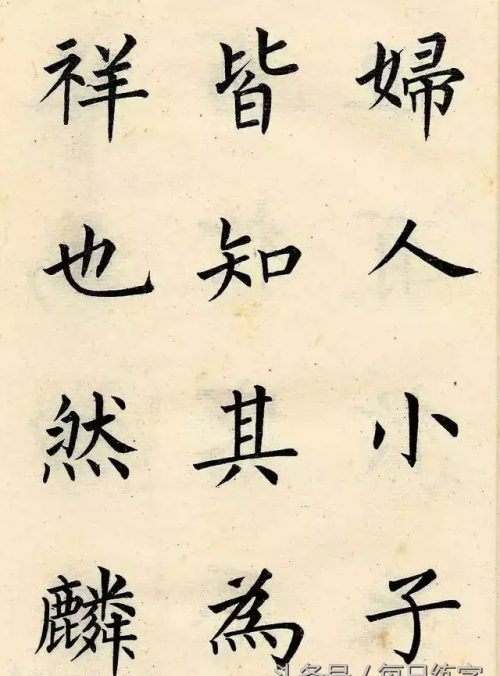 婦人小子
皆知其為
祥也然麟
头条号 / 每日练字